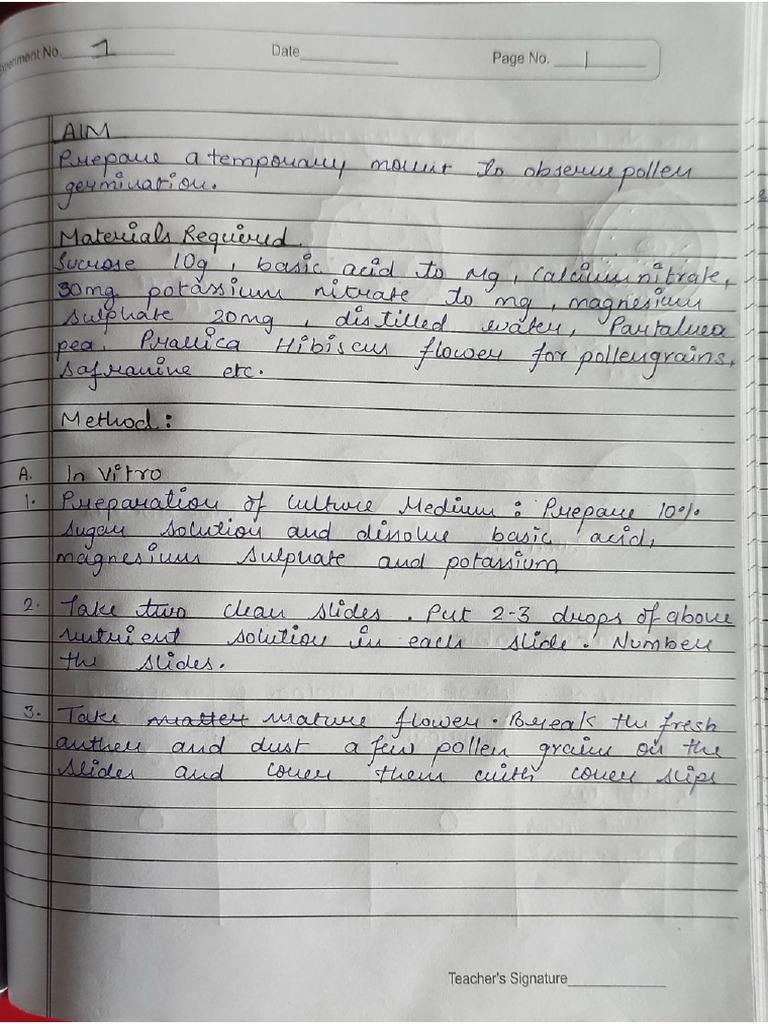 Experiment No. 1 Date Page No. 1
AIM
Prepare a temporary mount to observe pollen
germination.
Materials Required
Sucrose 10g, basic acid to mg, Calcium nitrate,
30mg potassium nitrate to mg, magnesium
sulphate 20mg, distilled water,
pea, Hibiscus flower for pollengrains,
safranine etc.
Method :
A. In Vitro
1. Preparation of Culture Medium : Prepare 10%
sugar solution and dissolve basic acid,
magnesium sulphate and potassium
2. Take two clean slides. Put 2-3 drops of above
nutrient solution in each slide. Number
the slides.
3. Take matter mature flower. Break the fresh
anther and dust a few pollen grains on the
slides and cover them with cover slips
Teacher's Signature